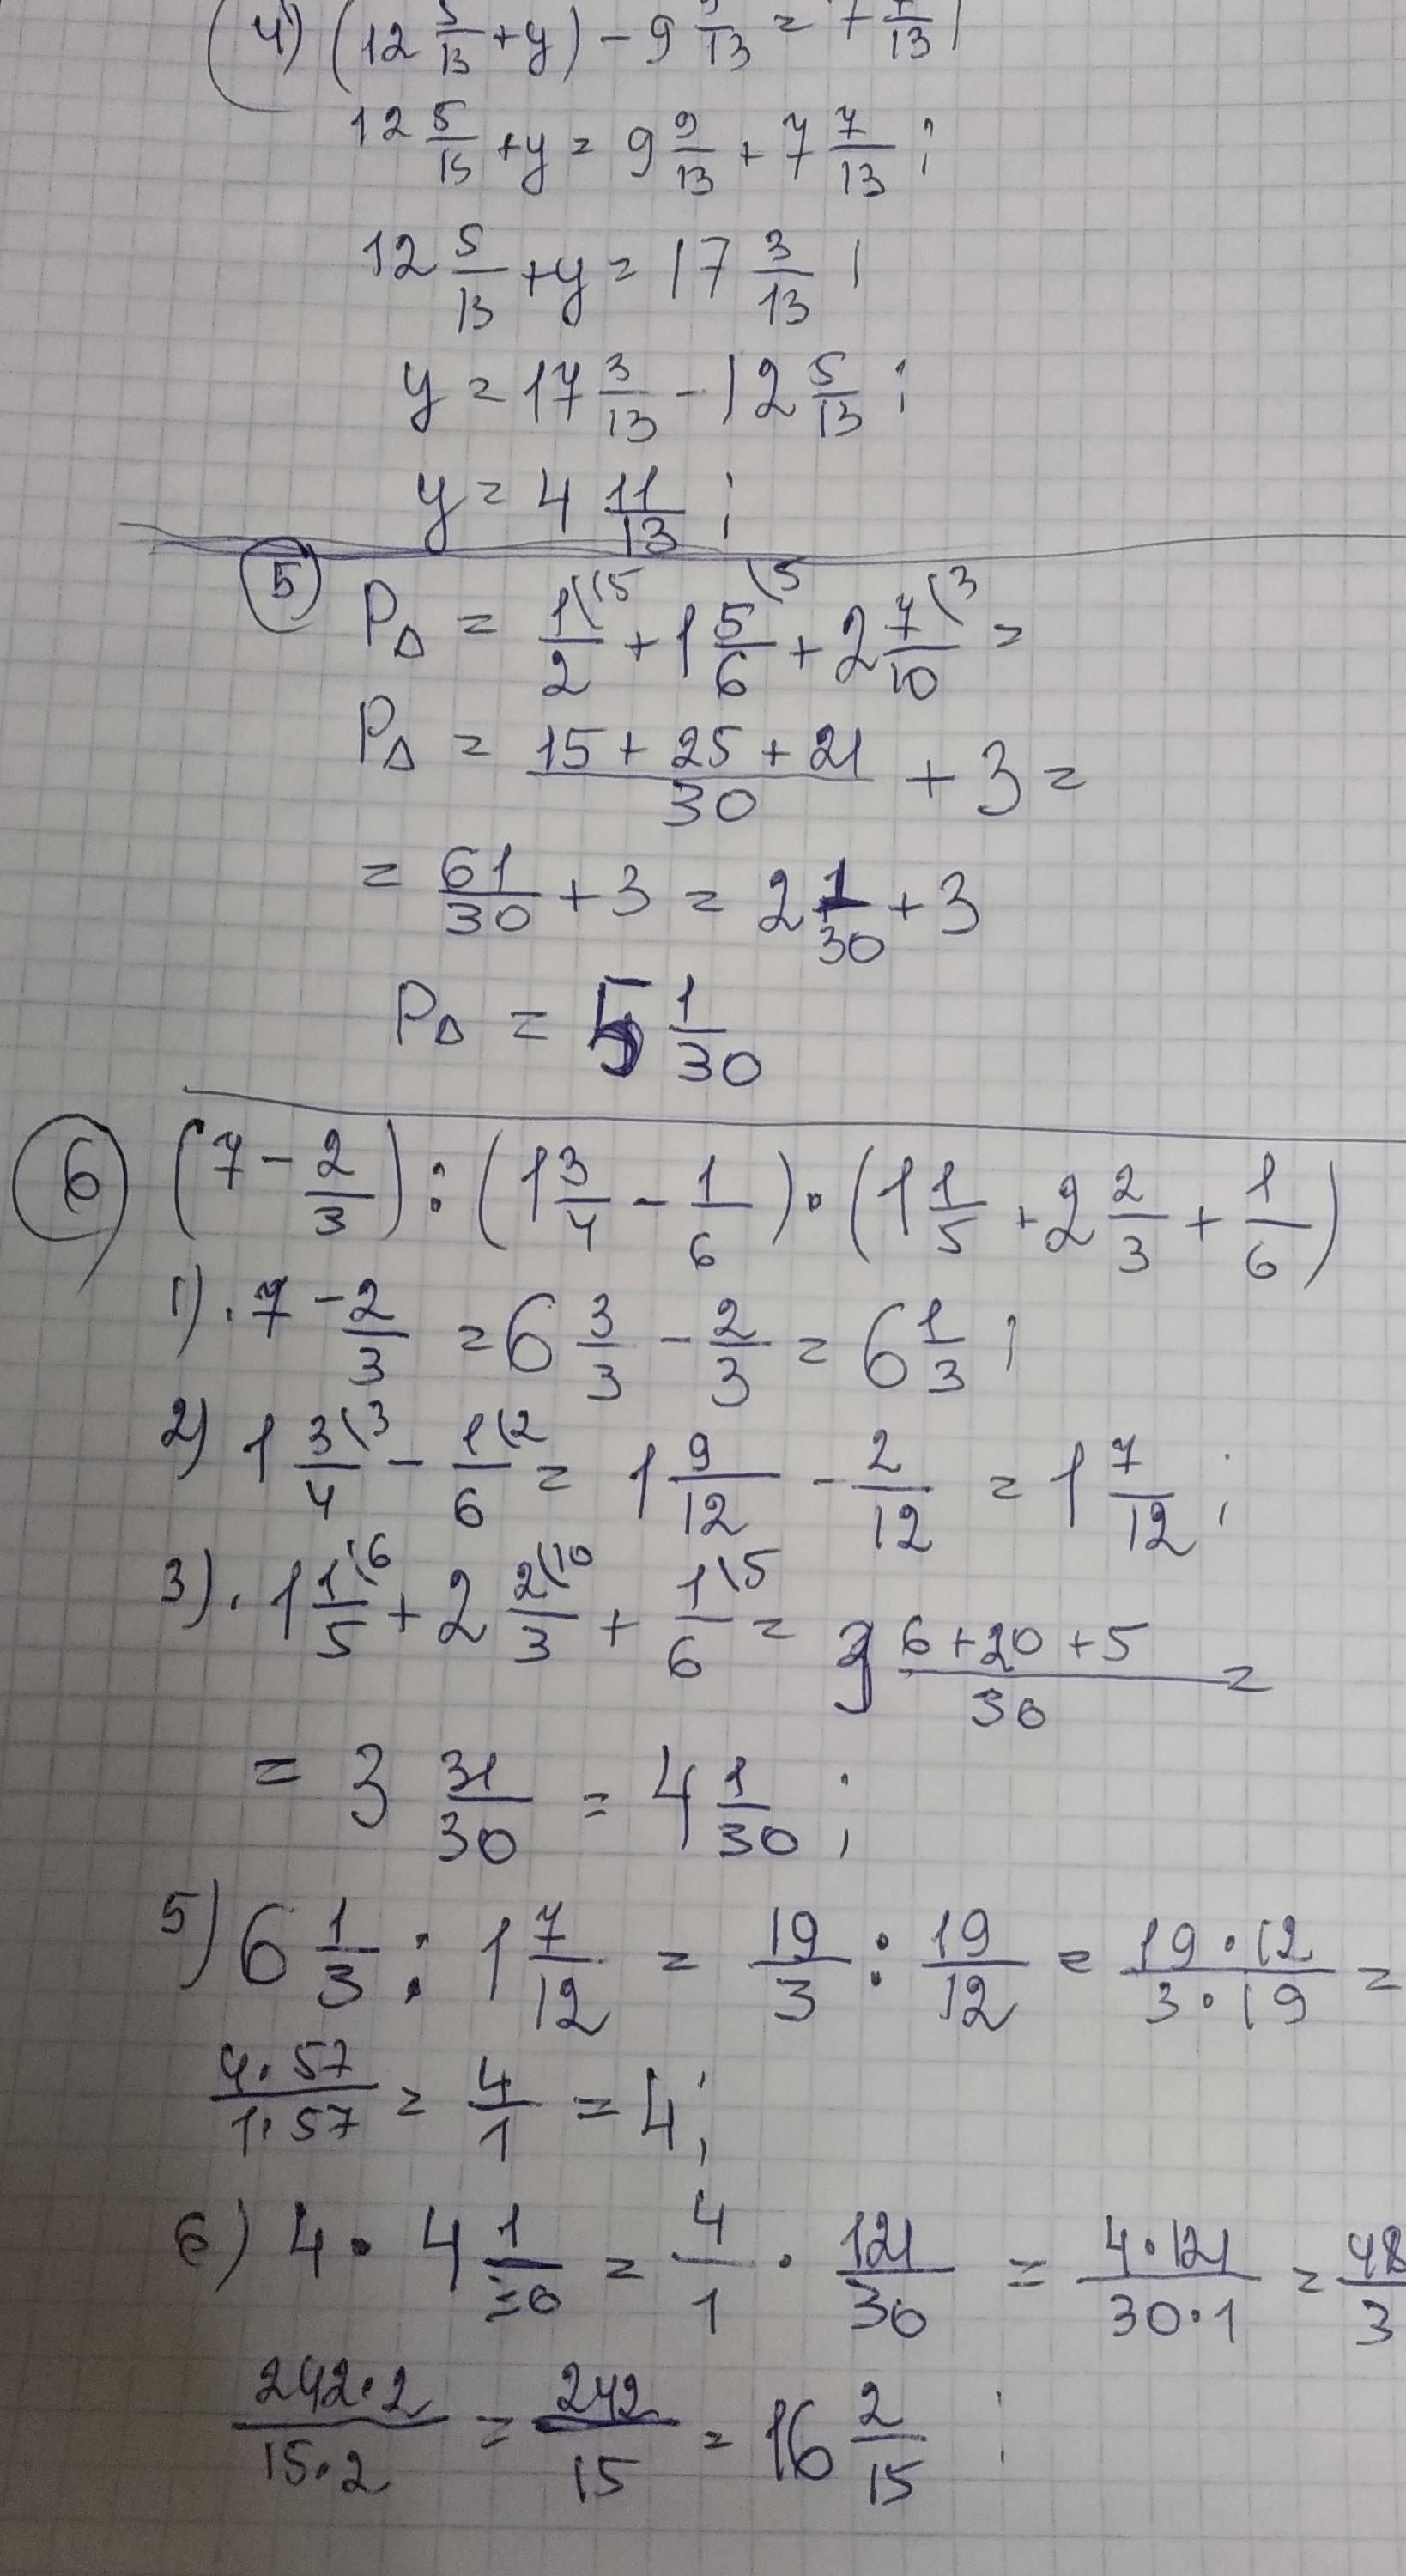 4) (12 5/13 + y) - 9 9/13 = 7 7/13
12 5/13 + y = 9 9/13 + 7 7/13 ;
12 5/13 + y = 17 3/13 ;
y = 17 3/13 - 12 5/13 ;
y = 4 11/13 ;
5 P△ = 1\15/2 + 1 5\5/6 + 2 7\3/10 =
P△ = (15 + 25 + 21)/30 + 3 =
= 61/30 + 3 = 2 1/30 + 3
P△ = 5 1/30
6 (7 - 2/3) : (1 3/4 - 1/6) · (1 1/5 + 2 2/3 + 1/6)
1). 7 - 2/3 = 6 3/3 - 2/3 = 6 1/3 ;
2) 1 3\3/4 - 1\2/6 = 1 9/12 - 2/12 = 1 7/12 ;
3). 1 1\6/5 + 2 2\10/3 + 1\5/6 = 3 (6+20+5)/30 =
= 3 31/30 = 4 1/30 ;
5) 6 1/3 : 1 7/12 = 19/3 : 19/12 = (19·12)/(3·19) =
(4·57)/(1·57) = 4/1 = 4 ;
6) 4 · 4 1/30 = 4/1 · 121/30 = (4·121)/(30·1) = 48/3
(242·2)/(15·2) = 242/15 = 16 2/15 ;